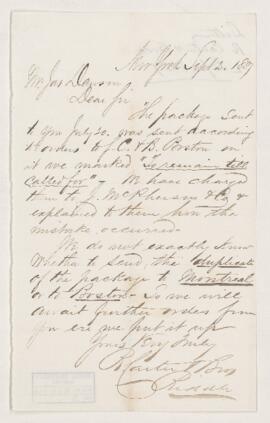 New York Sept 2. 1857
Mr Jas Dawson
Dear Sir
The package sent
to you July 20. was sent according
to orders to C. & B. Boston on
it was marked "To remain till
called for" - We have charged
them to J. McPherson & Co &
explained to them how the
mistake occurred.
We do not exactly know
whether to send the duplicate
of the package to Montreal
or to Boston - So we will
await further orders from
you ere we put it up
Yours Very Truly
R Carter & Bros